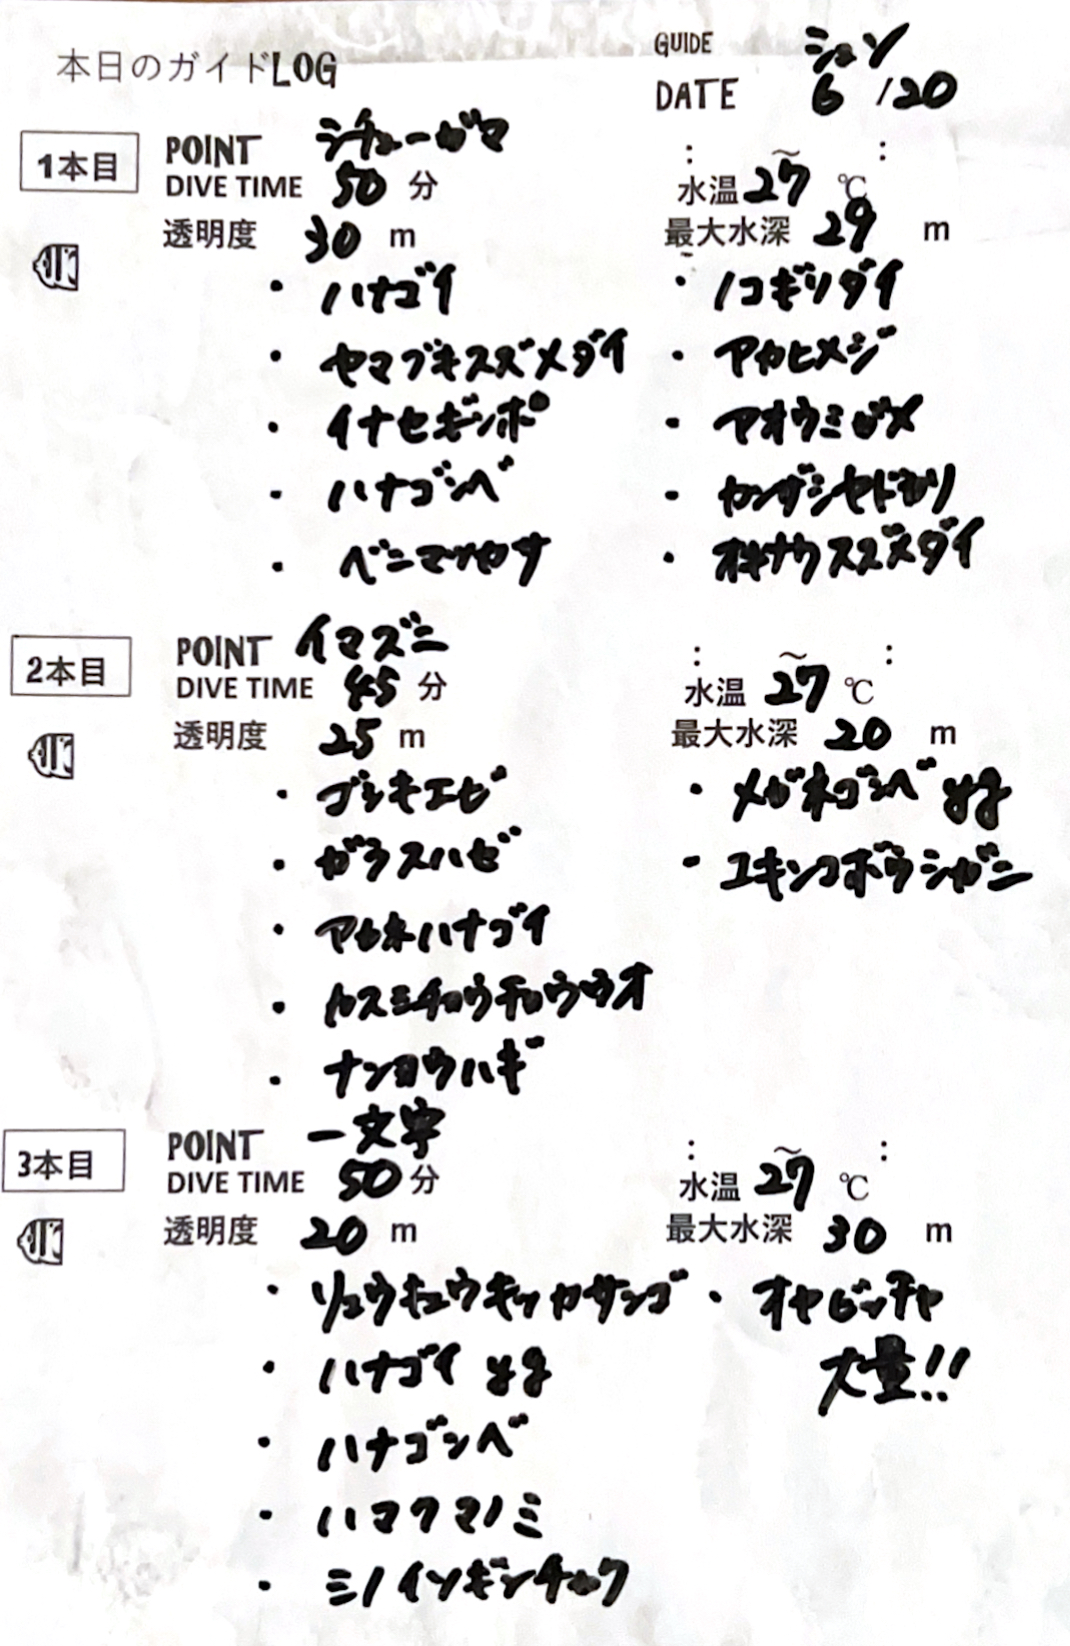 本日のガイドLOG
GUIDE シュン
DATE 6/20
1本目 POINT シチューガマ : ～ :
DIVE TIME 50分 水温27℃
透明度 30m 最大水深29m
・ハナゴイ ・ノコギリダイ
・ヤマブキスズメダイ ・アカヒメジ
・イナセギンポ ・アオウミガメ
・ハナゴンベ ・カンザシヤドカリ
・ベニマツカサ ・オキナワスズメダイ
2本目 POINT イマズニ : ～ :
DIVE TIME 45分 水温27℃
透明度 25m 最大水深20m
・ゴシキエビ ・メガネゴンベ yg
・ガラスハゼ ・ユキンコボウシガニ
・アカネハナゴイ
・カスミチョウチョウウオ
・ナンヨウハギ
3本目 POINT 一文字 : ～ :
DIVE TIME 50分 水温27℃
透明度 20m 最大水深30m
・リュウキュウキッカサンゴ ・オヤビッチャ
・ハナゴイ yg 大量!!
・ハナゴンベ
・ハマクマノミ
・シライソギンチャク